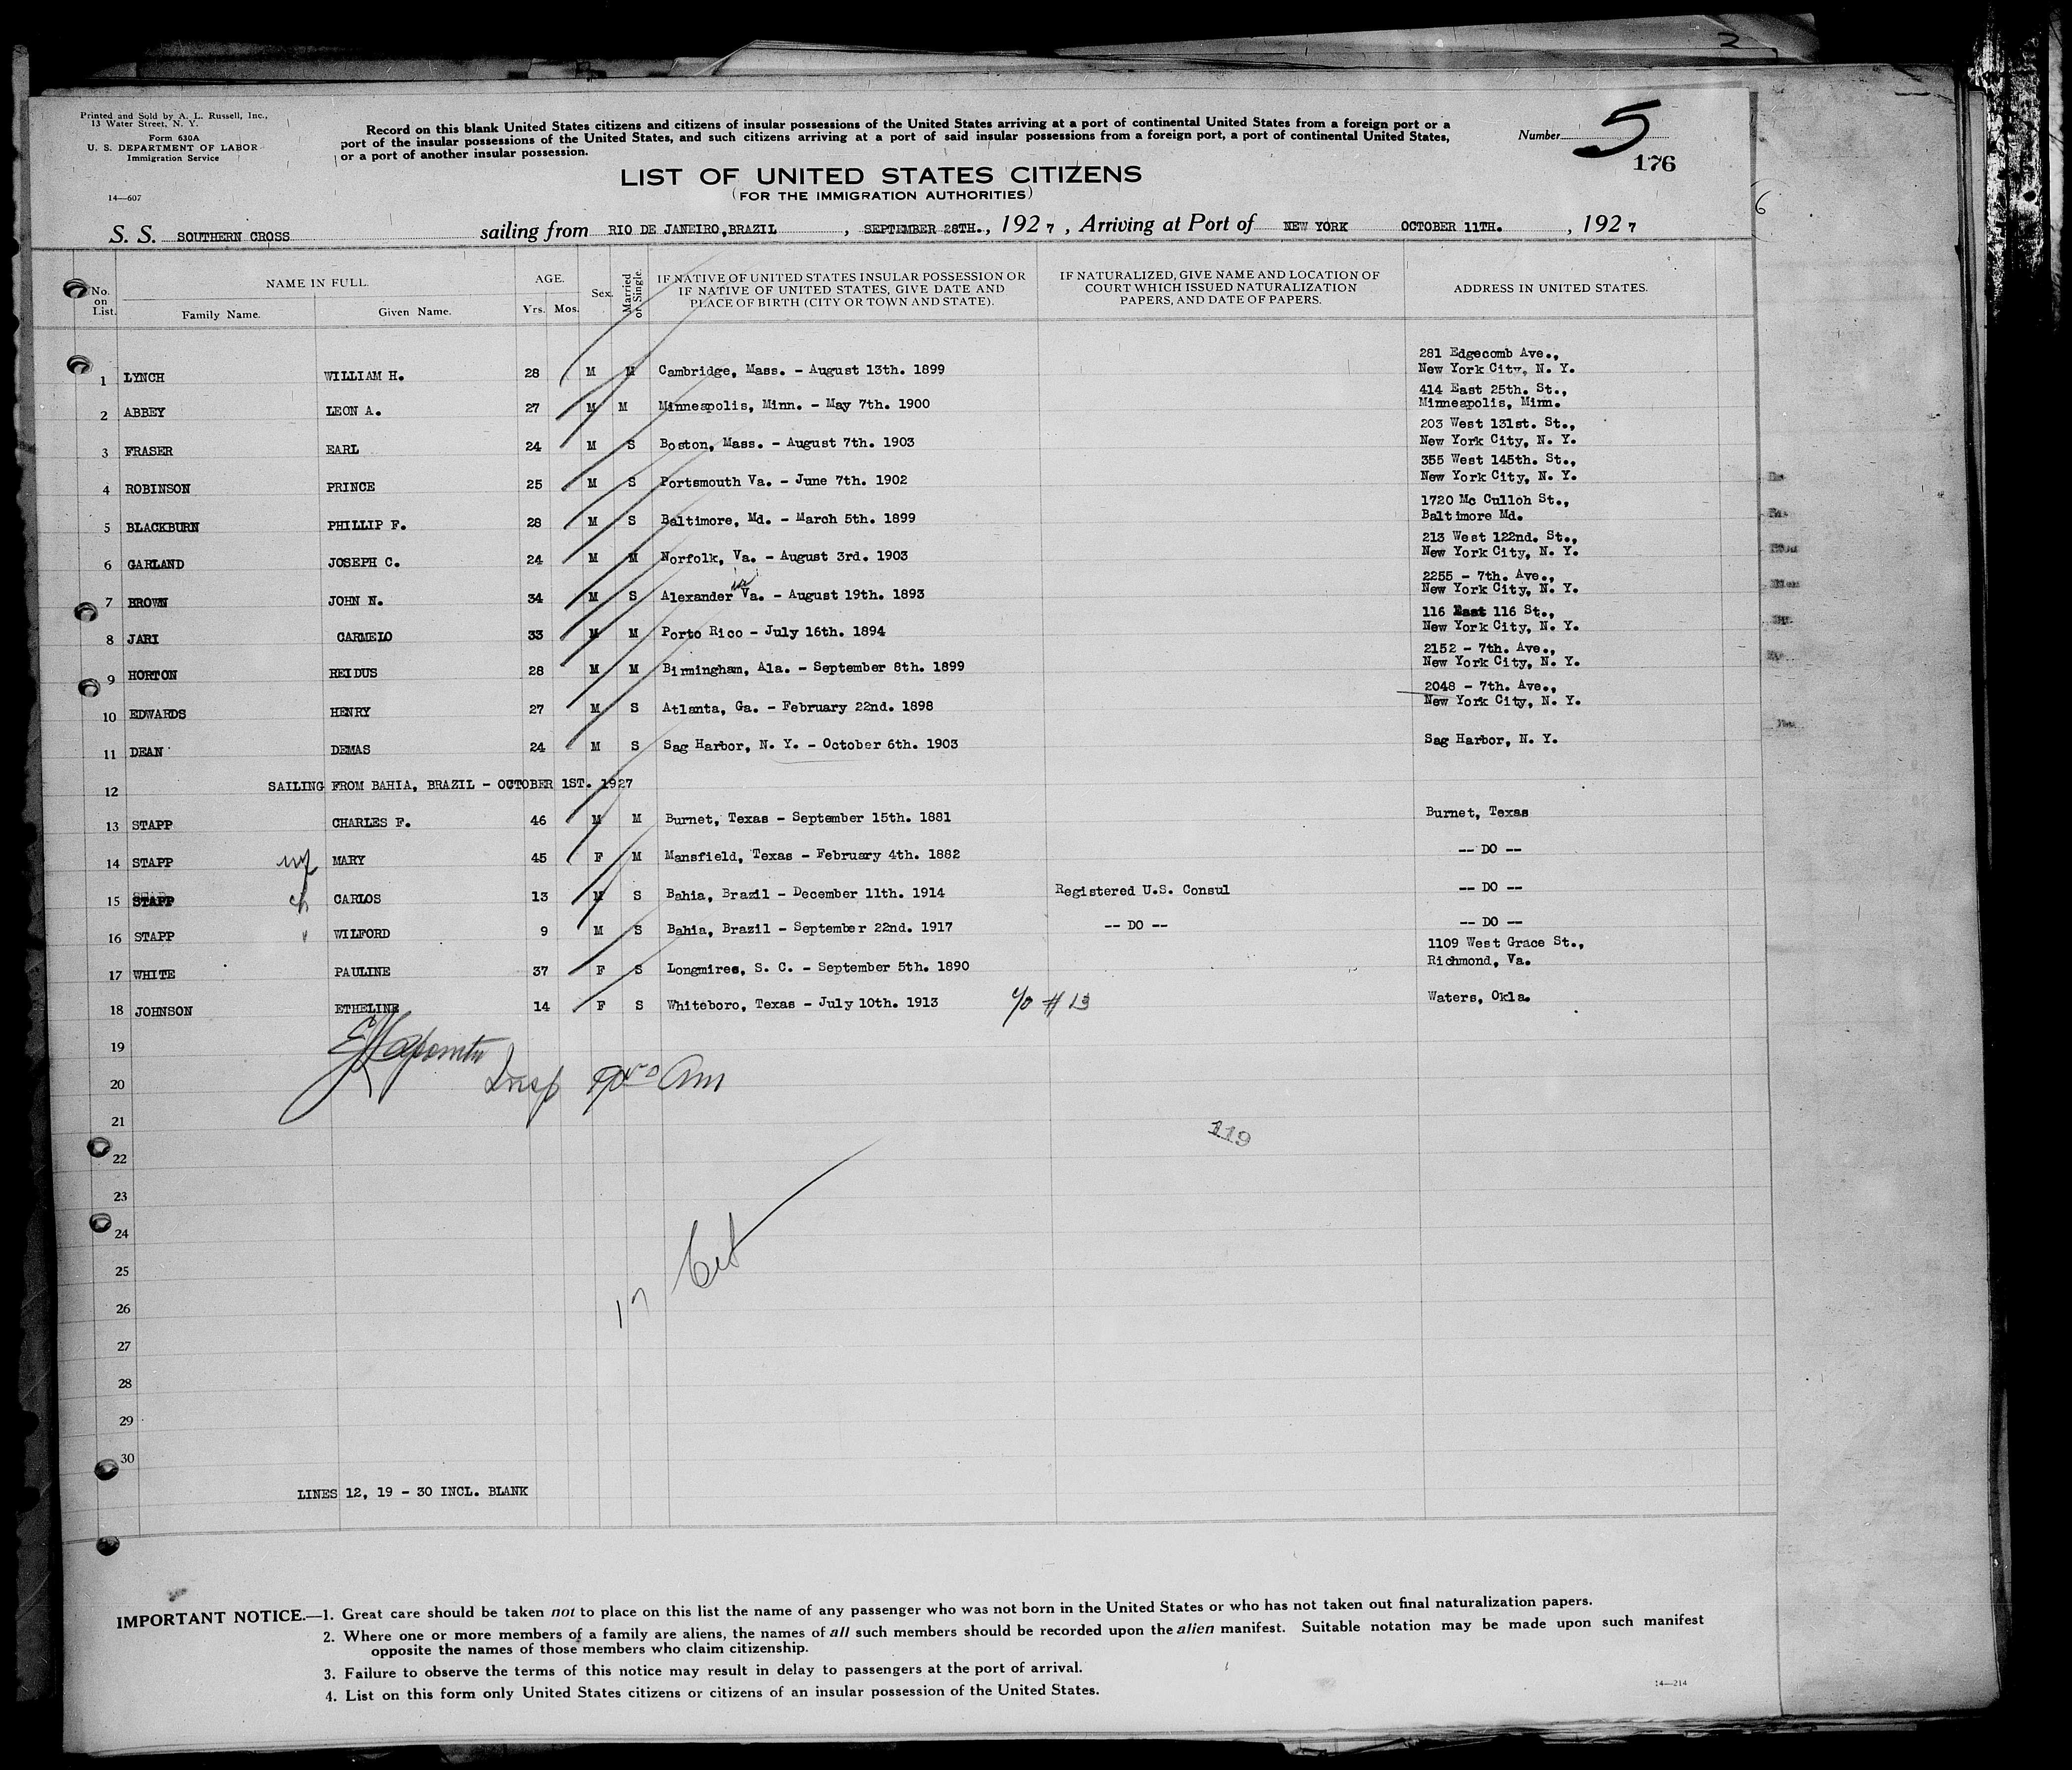 Printed and Sold by A. L. Russell, Inc.,
13 Water Street, N. Y.
Form 630A
U. S. DEPARTMENT OF LABOR
Immigration Service
14—607
Record on this blank United States citizens and citizens of insular possessions of the United States arriving at a port of continental United States from a foreign port or a
port of the insular possessions of the United States, and such citizens arriving at a port of said insular possessions from a foreign port, a port of continental United States,
or a port of another insular possession.
Number 5
176
LIST OF UNITED STATES CITIZENS
(FOR THE IMMIGRATION AUTHORITIES)
S. S. SOUTHERN CROSS sailing from RIO DE JANEIRO, BRAZIL, SEPTEMBER 28TH., 1927, Arriving at Port of NEW YORK OCTOBER 11TH., 1927
No. on List. NAME IN FULL. Family Name. Given Name. AGE. Yrs. Mos. Sex. Married or Single. IF NATIVE OF UNITED STATES INSULAR POSSESSION OR IF NATIVE OF UNITED STATES, GIVE DATE AND PLACE OF BIRTH (CITY OR TOWN AND STATE). IF NATURALIZED, GIVE NAME AND LOCATION OF COURT WHICH ISSUED NATURALIZATION PAPERS, AND DATE OF PAPERS. ADDRESS IN UNITED STATES.
1 LYNCH WILLIAM H. 28 M M Cambridge, Mass. - August 13th. 1899 281 Edgecomb Ave., New York City, N. Y.
2 ABBEY LEON A. 27 M M Minneapolis, Minn. - May 7th. 1900 414 East 25th. St., Minneapolis, Minn.
3 FRASER EARL 24 M S Boston, Mass. - August 7th. 1903 203 West 131st. St., New York City, N. Y.
4 ROBINSON PRINCE 25 M S Portsmouth Va. - June 7th. 1902 355 West 145th. St., New York City, N. Y.
5 BLACKBURN PHILLIP F. 28 M S Baltimore, Md. - March 5th. 1899 1720 Mc Culloh St., Baltimore Md.
6 GARLAND JOSEPH C. 24 M M Norfolk, Va. - August 3rd. 1903 213 West 122nd. St., New York City, N. Y.
7 BROWN JOHN N. 34 M S Alexander in Va. - August 19th. 1893 2255 - 7th. Ave., New York City, N. Y.
8 JARI CARMELO 33 M M Porto Rico - July 16th. 1894 116 East 116 St., New York City, N. Y.
9 HORTON REIDUS 28 M M Birmingham, Ala. - September 8th. 1899 2152 - 7th. Ave., New York City, N. Y.
10 EDWARDS HENRY 27 M S Atlanta, Ga. - February 22nd. 1898 2048 - 7th. Ave., New York City, N. Y.
11 DEAN DEMAS 24 M S Sag Harbor, N. Y. - October 6th. 1903 Sag Harbor, N. Y.
12 SAILING FROM BAHIA, BRAZIL - OCTOBER 1ST. 1927
13 STAPP CHARLES F. 46 M M Burnet, Texas - September 15th. 1881 Burnet, Texas
14 STAPP wf MARY 45 F M Mansfield, Texas - February 4th. 1882 -- DO --
15 STAPP ch CARLOS 13 M S Bahia, Brazil - December 11th. 1914 Registered U.S. Consul -- DO --
16 STAPP WILFORD 9 M S Bahia, Brazil - September 22nd. 1917 -- DO -- -- DO --
17 WHITE PAULINE 37 F S Longmires, S. C. - September 5th. 1890 1109 West Grace St., Richmond, Va.
18 JOHNSON ETHELINE 14 F S Whiteboro, Texas - July 10th. 1913 c/o # 13 Waters, Okla.
19
20 Insp
21
119
22
23
24
25
17 Cit
26
27
28
29
30
LINES 12, 19 - 30 INCL. BLANK
IMPORTANT NOTICE.—1. Great care should be taken not to place on this list the name of any passenger who was not born in the United States or who has not taken out final naturalization papers.
2. Where one or more members of a family are aliens, the names of all such members should be recorded upon the alien manifest. Suitable notation may be made upon such manifest
opposite the names of those members who claim citizenship.
3. Failure to observe the terms of this notice may result in delay to passengers at the port of arrival.
4. List on this form only United States citizens or citizens of an insular possession of the United States.
14—214